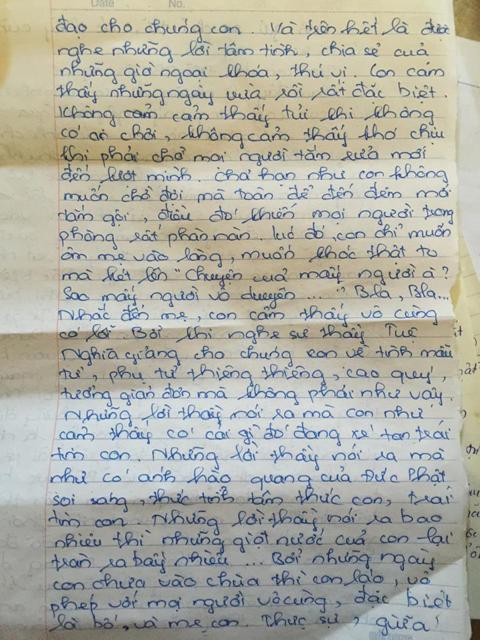 Date No.
đạo cho chúng con. Và trên hết là được
nghe những lời tâm tình, chia sẻ của
những giờ ngoại khóa, thú vị. Con cảm
thấy những ngày vừa rồi rất đặc biệt.
Không cảm thấy tủi khi không
có ai chơi, không cảm thấy khó chịu
khi phải chờ mọi người tắm rửa mới
đến lượt mình. Chả hạn như con không
muốn chờ đợi mà toàn để đến đêm mới
tắm gội, điều đó khiến mọi người trong
phòng rất phàn nàn. Lúc đó, con chỉ muốn
ôm mẹ vào lòng, muốn khóc thật to
mà hét lên "Chuyện của mấy người à?
Sao mấy người vô duyên ...." Bla, Bla...
Nhắc đến mẹ, con cảm thấy vô cùng
có lỗi. Bởi khi nghe sư thầy Tuệ
Nghĩa giảng cho chúng con về tình mẫu
tử, phụ tử thiêng thiêng, cao quý,
tưởng giản đơn mà không phải như vậy.
Những lời thầy nói ra mà con như
cảm thấy có cái gì đó đang xé tan trái
tim con. Những lời thầy nói ra mà
như có ánh hào quang của Đức Phật
soi sáng, thức tỉnh tâm thức con, trái
tim con. Những lời thầy nói ra bao
nhiêu thì những giọt nước của con lại
tràn ra bấy nhiêu ... Bởi những ngày
con chưa vào chùa thì con láo, vô
phép với mọi người vô cùng, đặc biệt
là bố, và mẹ con. Thực sự,